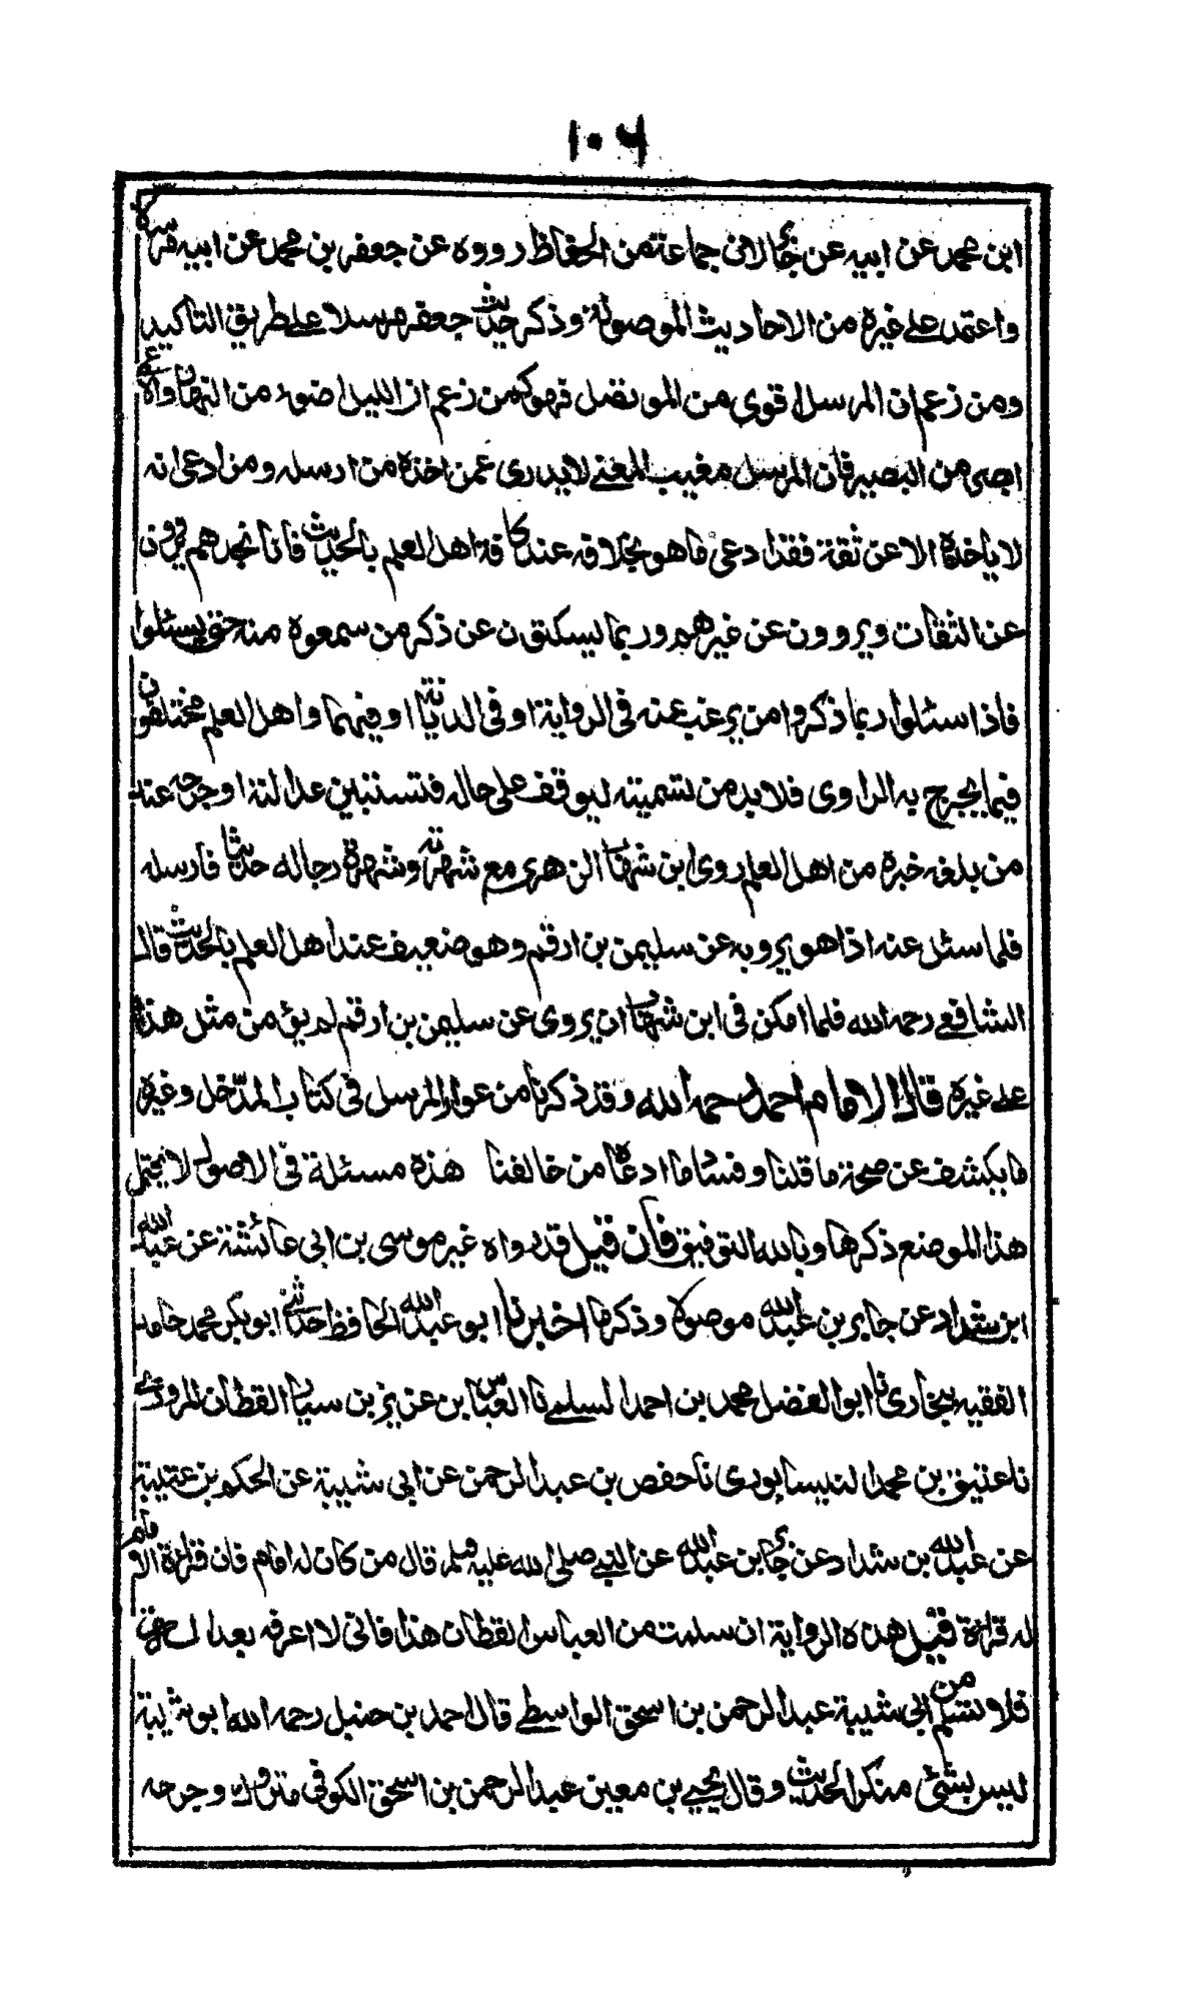 ١٠٦
ابن محمد عن ابيه عن جابر لان جماعة من الحفاظ رووه عن جعفر بن محمد عن ابيه مرسلا
واعتمد على غيره من الاحاديث الموصولة وذكر حديث جعفر مرسلا على طريق التاكيد
ومن زعم ان المرسل اقوى من الموتصل فهو كمن زعم ان الليل اضوء من النهار والاعمى
ابصر من البصير فان المرسل مغيب المعنى لا يدرى عمن اخذه من ارسله ومن ادعى انه
لا ياخذه الا عن ثقة فقد ادعى ما هو بخلافه عند كافة اهل العلم بالحديث فانا نجدهم يروون
عن الثقات ويروون عن غيرهم وربما يسكتون عن ذكر من سمعوه منه حتى يسئلوا
فاذا سئلوا ربما ذكروا من يرغب عنه فى الرواية او فى الديانة او فيهما واهل العلم مختلفون
فيما يجرح به الراوى فلا بد من تسميته ليوقف على حاله فتستبين عدالته او جرحه عند
من بلغه خبره من اهل العلم روى ابن شهاب الزهرى مع شهرته وشهرة رجاله حديثا فارسله
فلما سئل عنه اذا هو يرويه عن سليمن بن ارقم وهو ضعيف عند اهل العلم بالحديث قال
الشافعى رحمه الله فلما امكن فى ابن شهاب ان يروى عن سليمن بن ارقم لم يؤمن مثل هذا
على غيره قال الامام احمد رحمه الله وقد ذكرنا من عوار المرسل فى كتاب المدخل وغيره
ما يكشف عن صحة ما قلنا وفساد ما ادعاه من خالفنا هذه مسئلة فى الاصول لا يحتمل
هذا الموضع ذكرها وبالله التوفيق فان قيل قد رواه غير موسى بن ابى عائشة عن عبد الله
ابن شداد عن جابر بن عبد الله موصولا وذكر ما اخبرنا ابو عبد الله الحافظ حدثنى ابو بكر محمد حامد
الفقيه ببخارى نا ابو الفضل محمد بن احمد السلمى نا العباس بن عزيز بن سيار القطان المروزى
نا عتيق بن محمد النيسابورى نا حفص بن عبد الرحمن عن ابى شيبة عن الحكم بن عتيبة
عن عبد الله بن شداد عن جابر بن عبد الله عن النبى صلى الله عليه وسلم قال من كان له امام فان قراءة الامام
له قراءة قيل هذه الرواية ان سلمت من العباس القطان هذا فانى لا اعرفه بعد
فلا تسلم من ابى شيبة عبد الرحمن بن اسحق الواسطى قال احمد بن حنبل رحمه الله ابو شيبة
ليس بشئ منكر الحديث وقال يحيى بن معين عبد الرحمن بن اسحق الكوفى متروك وجرحه